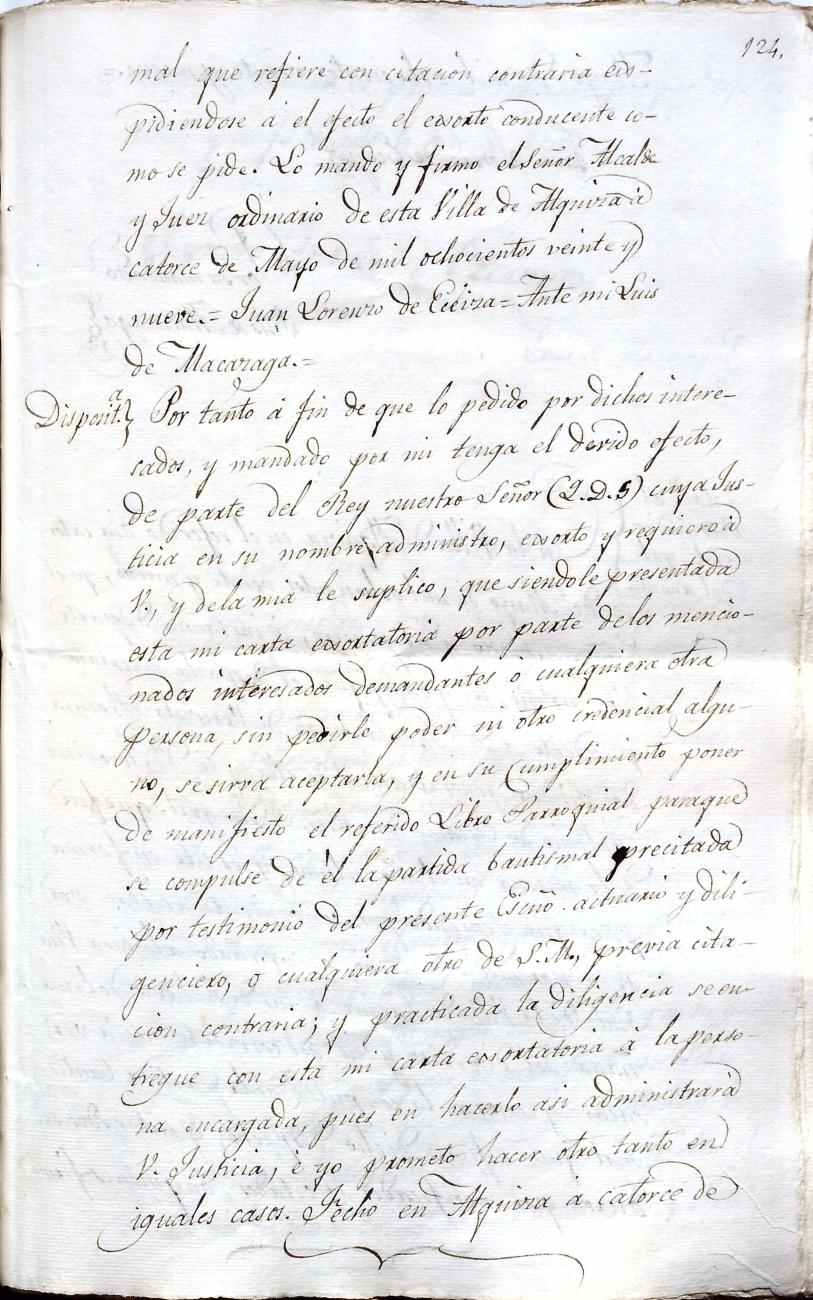 124.
mal que refiere con citacion contraria ex-
pidiendose á el efecto el exorto conducente co-
mo se pide. Lo mando y firmo el Señor Alcalde
y Juez ordinario de esta Villa de Alquiza á
catorce de Mayo de mil ochocientos veinte y
nueve.= Juan Lorenzo de Eceiza= Ante mi Luis
de Macazaga.=
Disposit.ª} Por tanto á fin de que lo pedido por dichos intere-
sados, y mandado por mi tenga el devido efecto,
de parte del Rey nuestro Señor (Q.D.G) cuya Jus-
ticia en su nombre administro, exorto y requiero á
V., y dela mia le suplico, que siendole presentada
esta mi carta exortatoria por parte delos mencio-
nados interesados demandantes ó cualquiera otra
persona, sin pedirle poder ni otro credencial algu-
no, se sirva aceptarla, y en su Cumplimiento poner
de manifiesto el referido Libro Parroquial paraque
se compulse de él la partida bautismal precitada
por testimonio del presente Escño. actuario y dili-
genciero, ó cualquiera otro de S.M., previa cita-
cion contraria; y practicada la diligencia se en-
tregue con esta mi carta exortatoria á la perso-
na encargada, pues en hacerlo asi administrará
V. Justicia, é yo prometo hacer otro tanto en
iguales casos. Fecho en Alquiza á catorce de